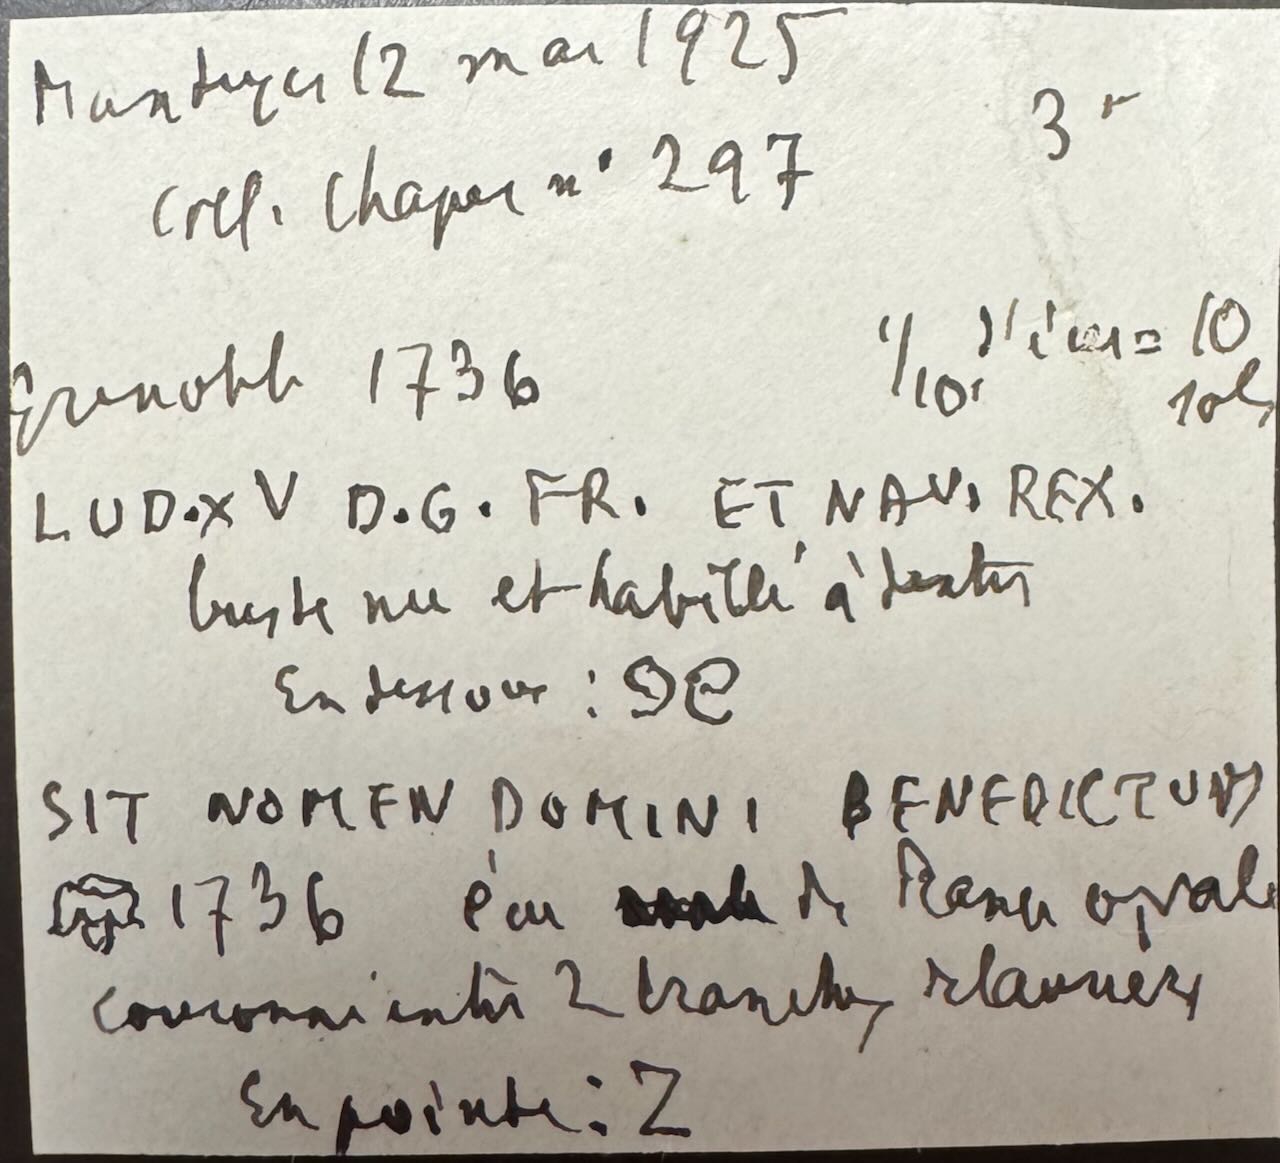 Manteyer 12 mai 1925
3 r
Coll. Chaper n° 297
Grenoble 1736
1/10 d'écu = 10
sols
LUD.XV D.G. FR. ET NAV. REX.
buste nu et habillé à dextre
En dessous : 
SIT NOMEN DOMINI BENEDICTUM
1736 écu de France ovale
couronné entre 2 branches de lauriers
En pointe : Z